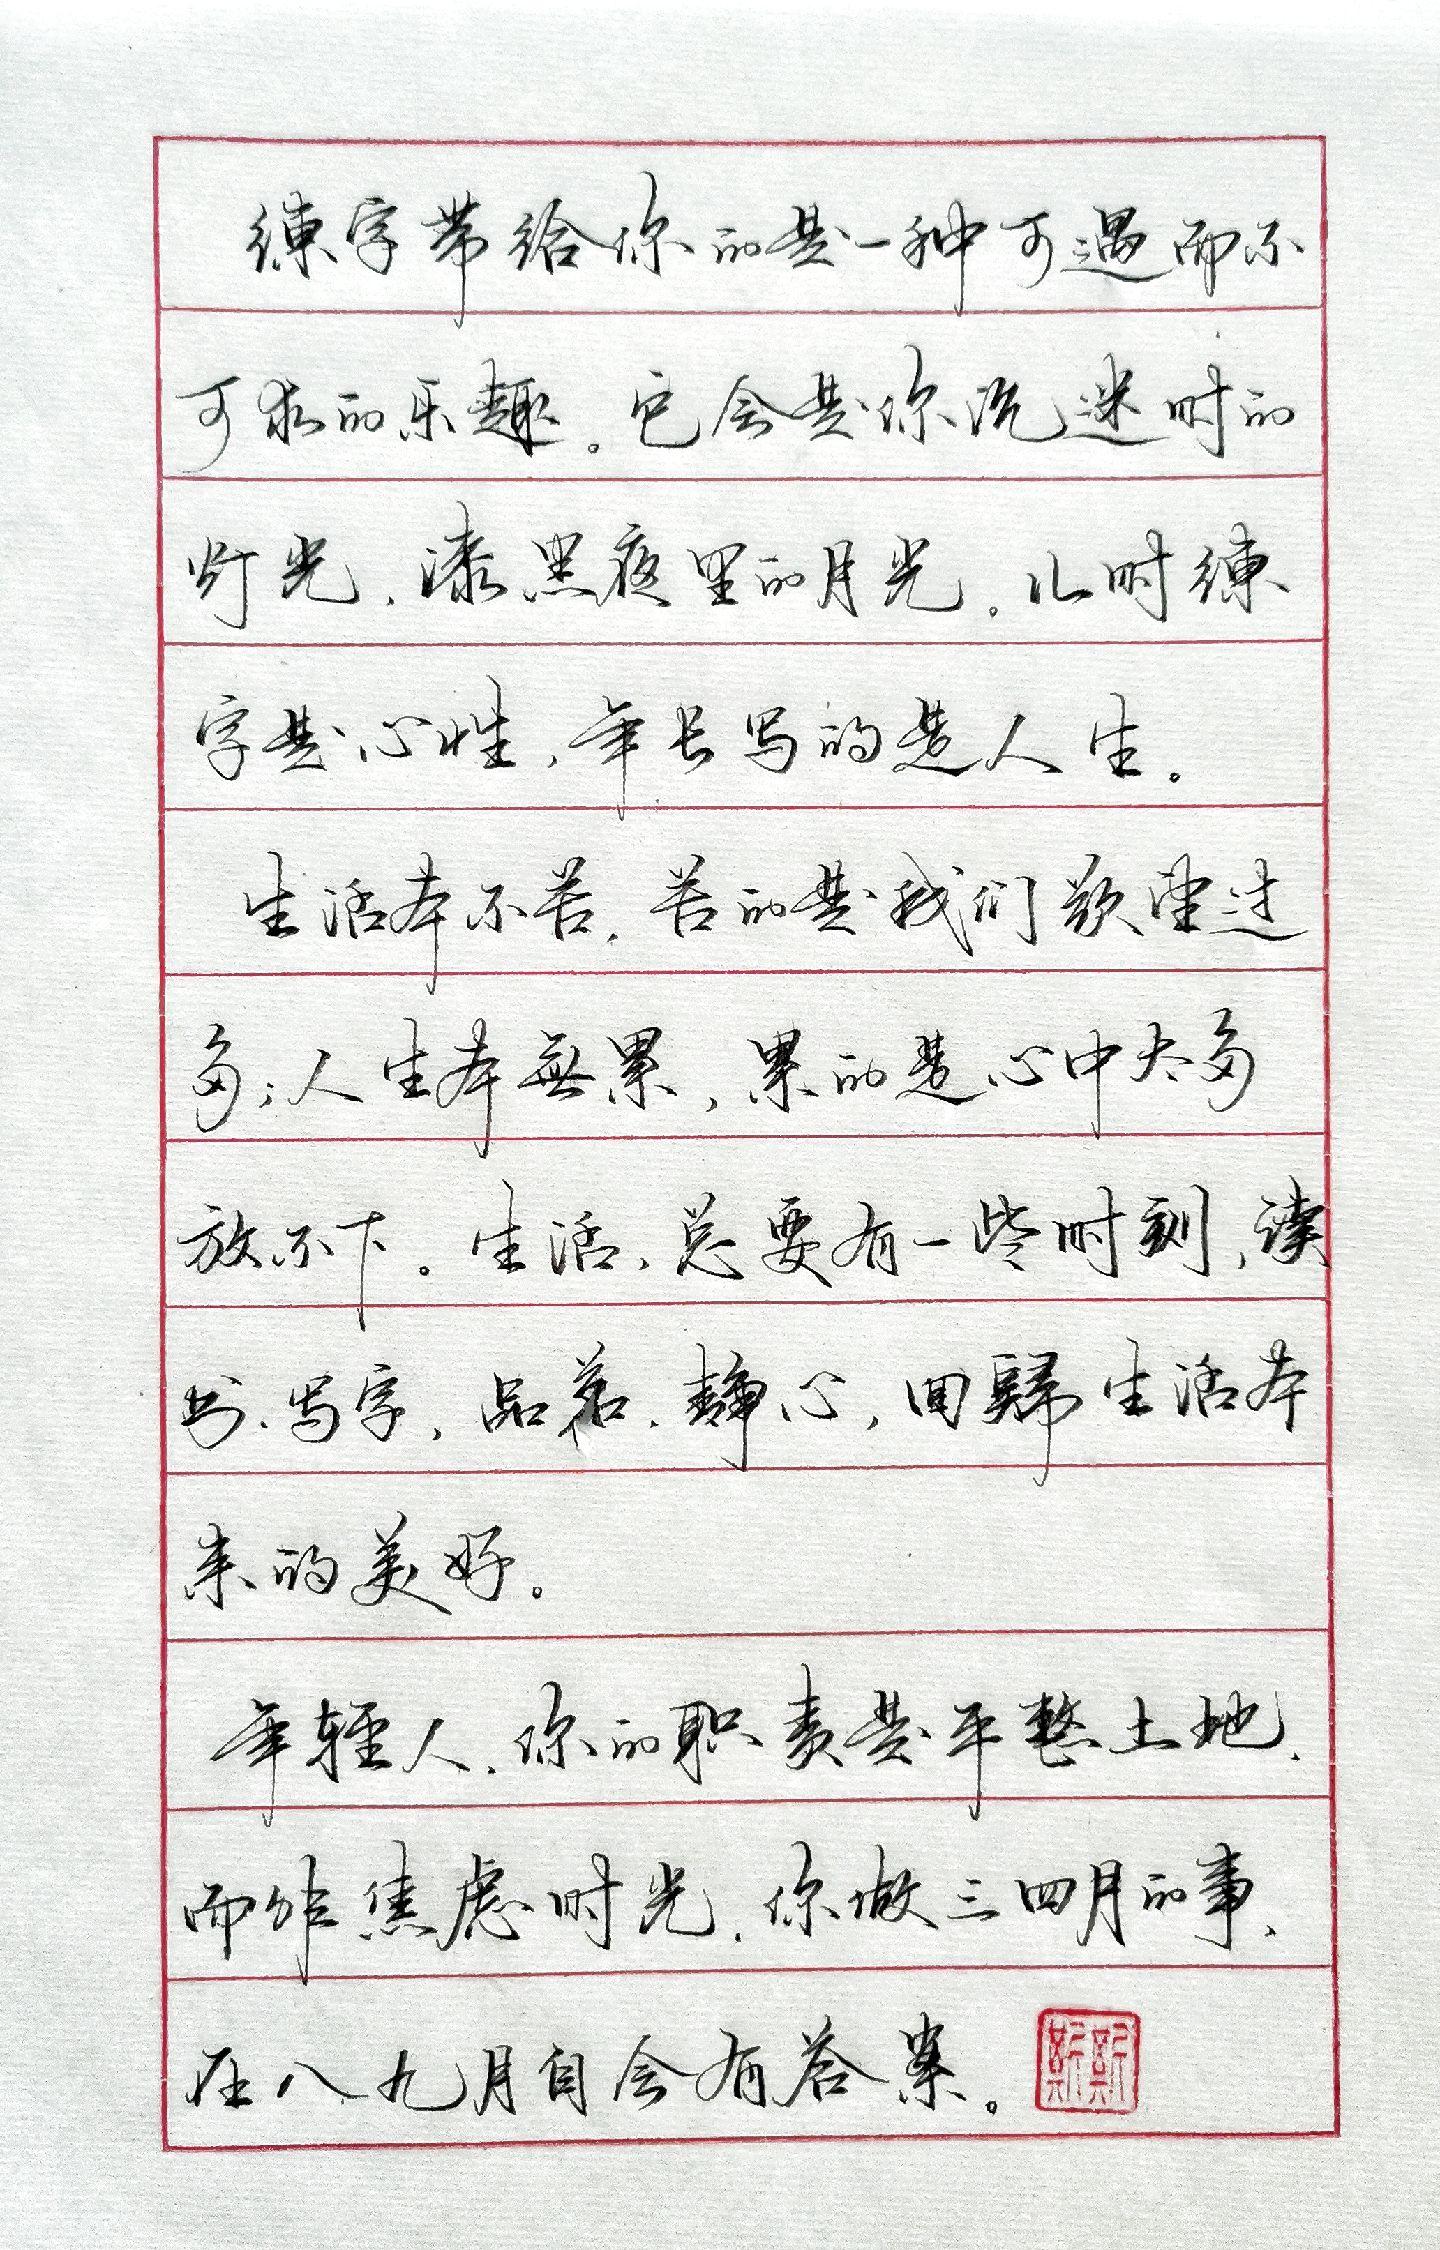 练字带给你的是一种可遇而不
可求的乐趣。它会是你沉迷时的
灯光,漆黑夜里的月光。儿时练
字是心性,年长写的是人生。
生活本不苦,苦的是我们欲望过
多;人生本無累,累的是心中太多
放不下。生活,总要有一些时刻,读
书、写字,品茗、静心,回歸生活本
来的美好。
年轻人,你的职责是平整土地,
而非焦虑时光,你做三四月的事,
在八九月自会有答案。